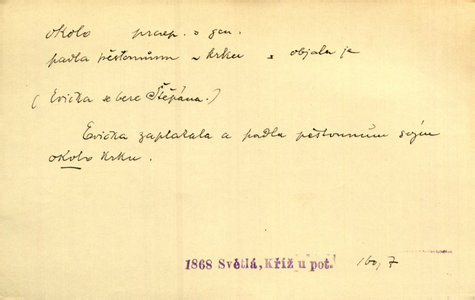 okolo praep. s gen.
padla pěstounům ~ krku = objala je
(Evička se bere Štěpána.)
Evička zaplakala a padla pěstounům svým
okolo krku.
1868 Světlá, Kříž u pot. 160, 7